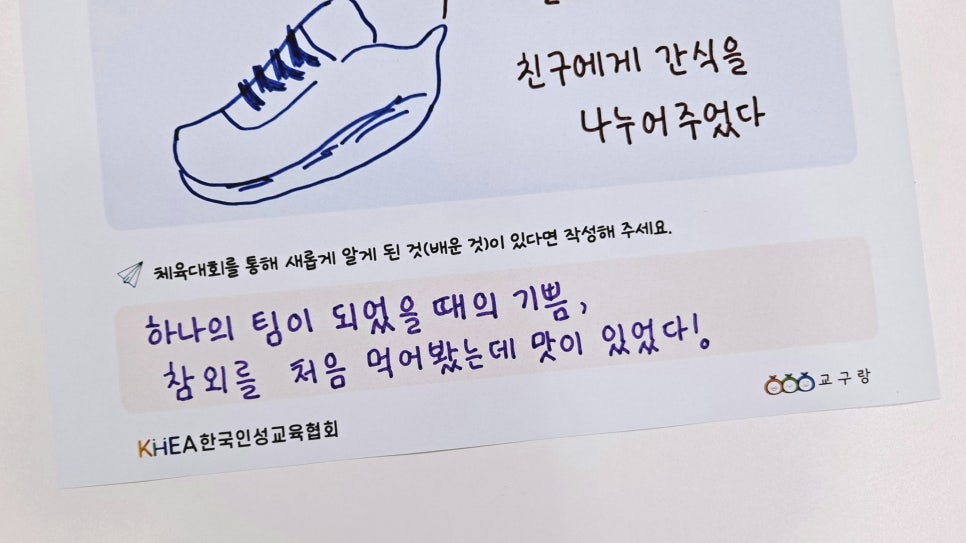 친구에게 간식을
나누어주었다
체육대회를 통해 새롭게 알게 된 것(배운 것)이 있다면 작성해 주세요.
하나의 팀이 되었을 때의 기쁨,
참외를 처음 먹어봤는데 맛이 있었다!
KHEA한국인성교육협회
교구랑